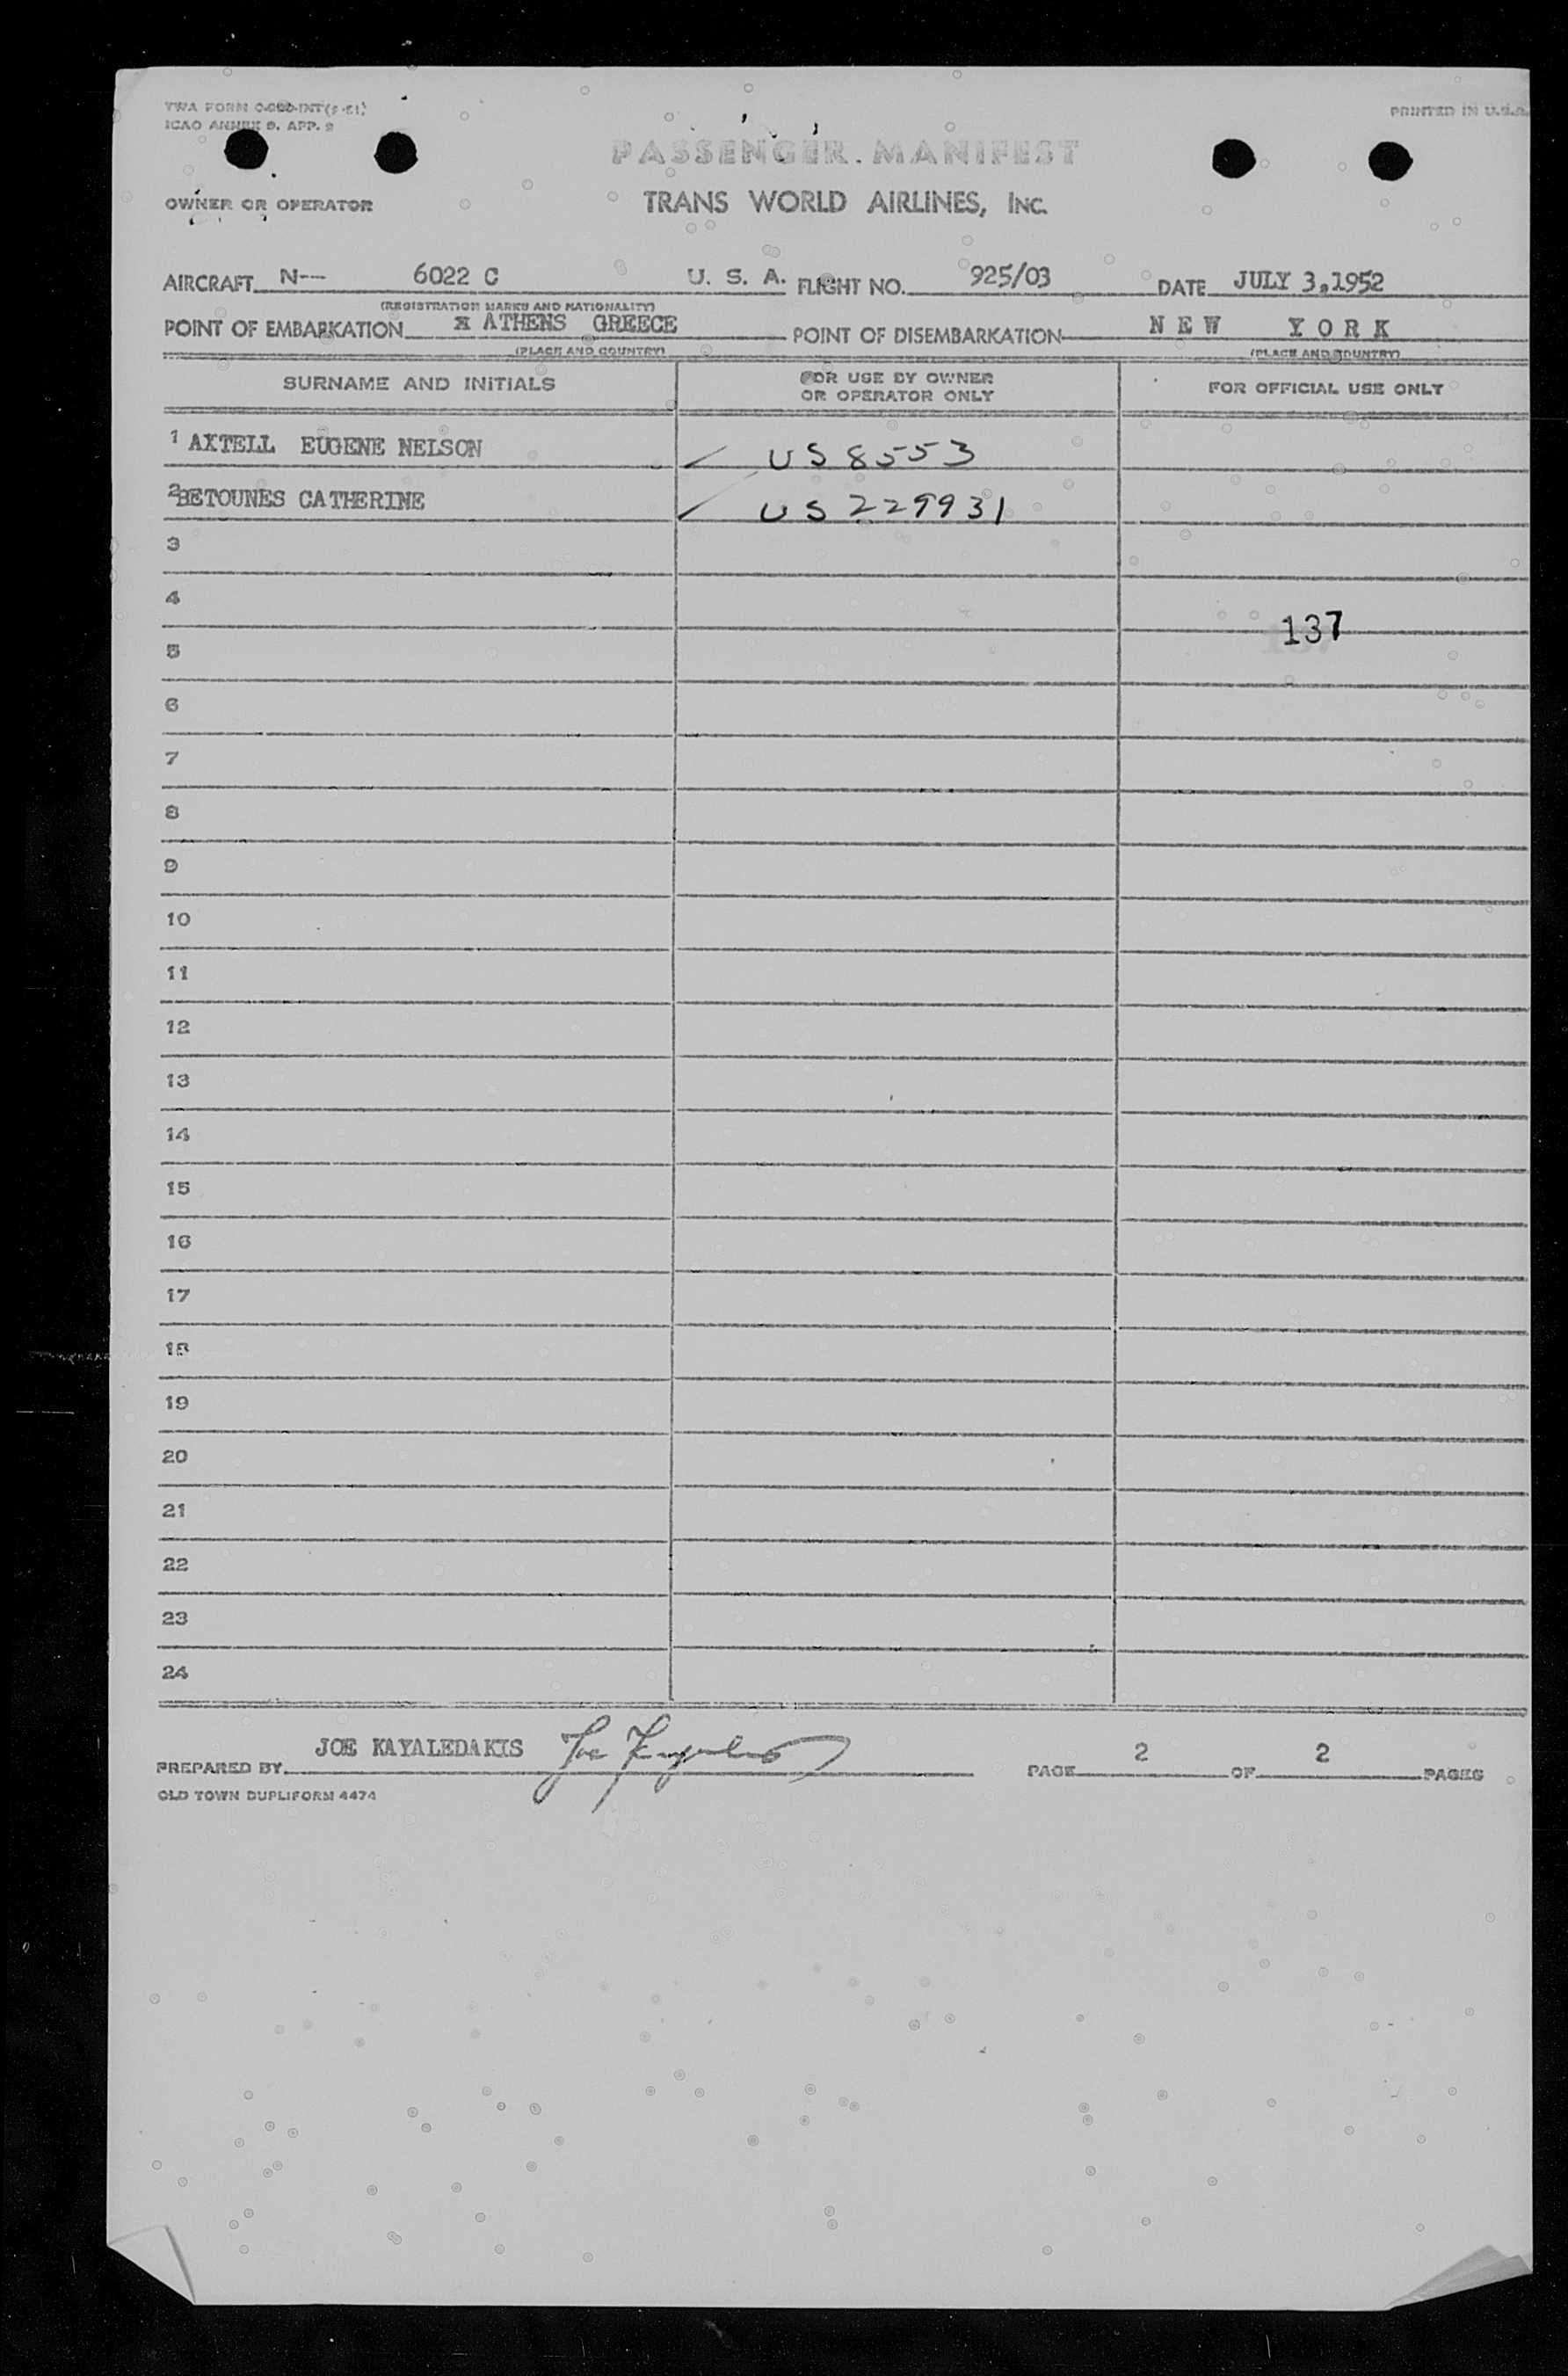 TWA FORM O-080-INT(5-51)
ICAO ANNEX 9. APP. 2
PRINTED IN U.S.A.
PASSENGER MANIFEST
OWNER OR OPERATOR
TRANS WORLD AIRLINES, INC.
AIRCRAFT N-- 6022 C U. S. A. FLIGHT NO. 925/03 DATE JULY 3,1952
(REGISTRATION MARKS AND NATIONALITY)
POINT OF EMBARKATION ATHENS GREECE POINT OF DISEMBARKATION N E W Y O R K
(PLACE AND COUNTRY) (PLACE AND COUNTRY)
SURNAME AND INITIALS FOR USE BY OWNER OR OPERATOR ONLY FOR OFFICIAL USE ONLY
1 AXTELL EUGENE NELSON US 8553
2 BETOUNES CATHERINE US 229931
3
4
137
5
6
7
8
9
10
11
12
13
14
15
16
17
18
19
20
21
22
23
24
PREPARED BY JOE KAYALEDAKIS Joe Kayaledakis PAGE 2 OF 2 PAGES
OLD TOWN DUPLIFORM 4474